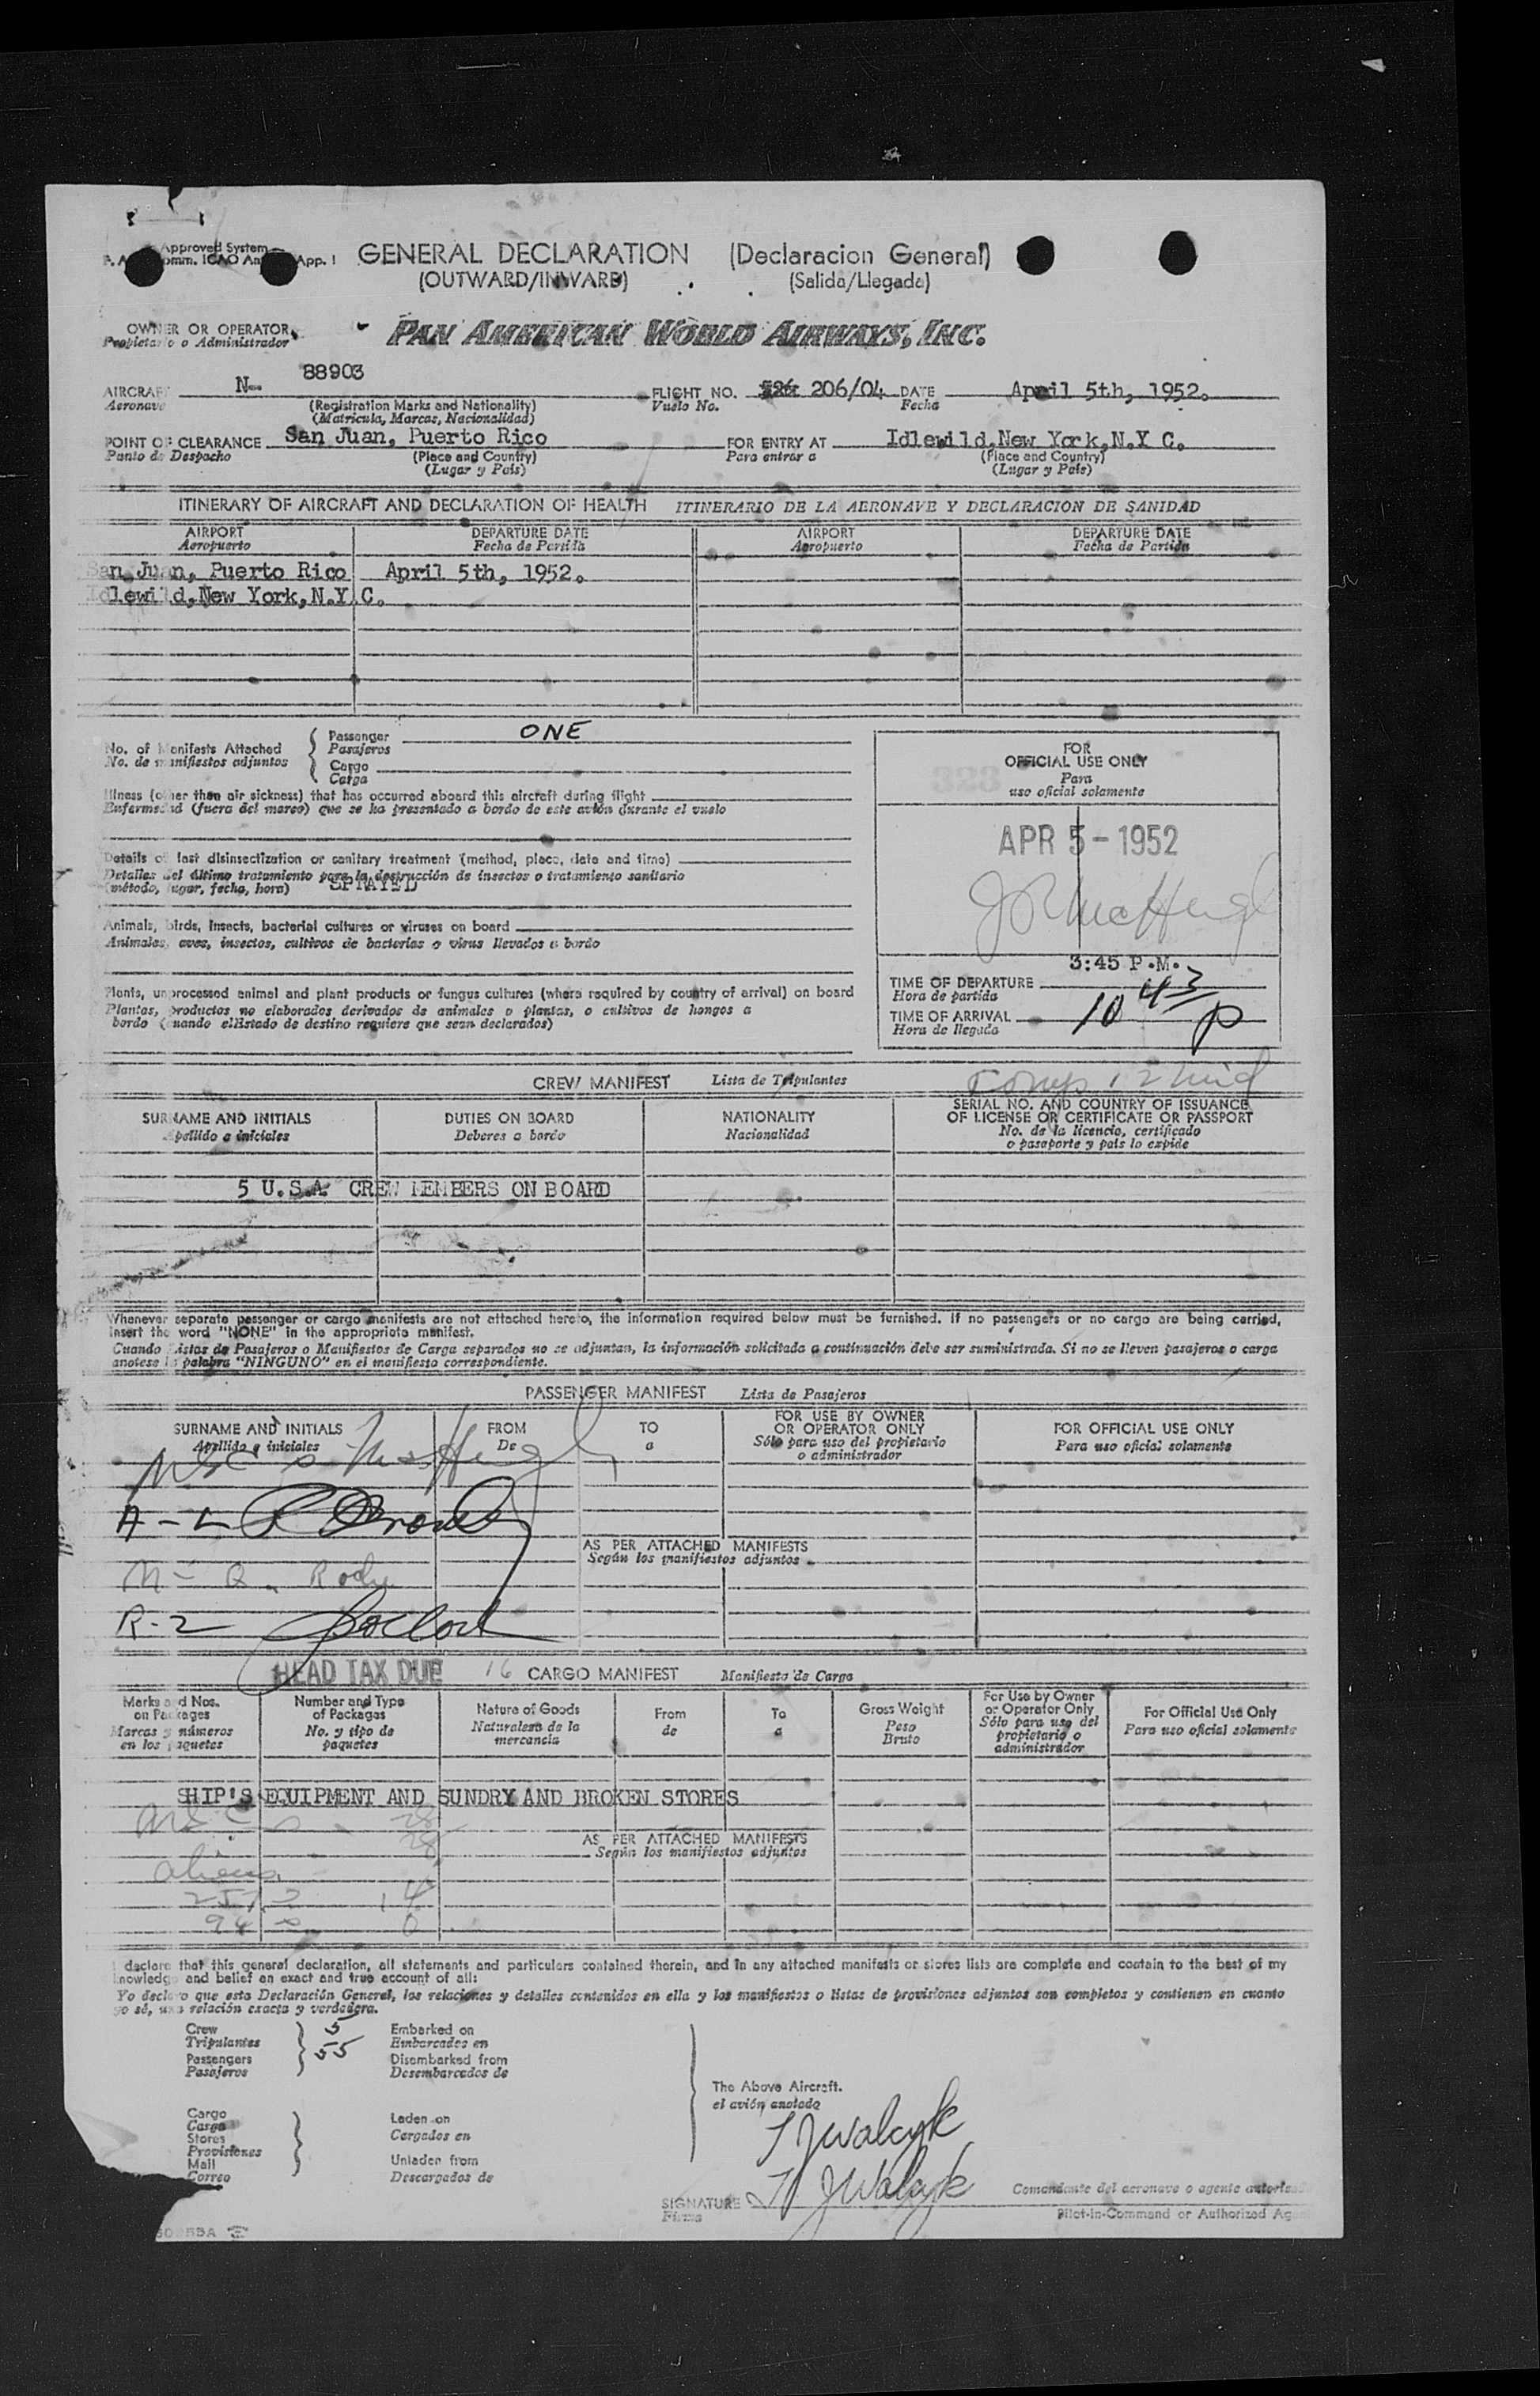 Approved System
App. I
GENERAL DECLARATION (Declaracion General)
(OUTWARD/INWARD) (Salida/Llegada)
OWNER OR OPERATOR
Propietario o Administrador
PAN AMERICAN WORLD AIRWAYS, INC.
AIRCRAFT N- 88903 FLIGHT NO. 526 206/04 DATE April 5th, 1952.
Aeronave (Registration Marks and Nationality) Vuelo No. Fecha
(Matricula, Marcas, Nacionalidad)
POINT OF CLEARANCE San Juan, Puerto Rico FOR ENTRY AT Idlewild,New York,N.Y C.
Punto de Despacho (Place and Country) Para entrar a (Place and Country)
(Lugar y Pais) (Lugar y Pais)
ITINERARY OF AIRCRAFT AND DECLARATION OF HEALTH ITINERARIO DE LA AERONAVE Y DECLARACION DE SANIDAD
AIRPORT DEPARTURE DATE AIRPORT DEPARTURE DATE
Aeropuerto Fecha de Partida Aeropuerto Fecha de Partida
San Juan, Puerto Rico April 5th, 1952.
Idlewild,New York,N.Y.C.
No. of Manifests Attached
No. de manifiestos adjuntos
Passenger ONE
Pasajeros
Cargo
Carga
Illness (other than air sickness) that has occurred aboard this aircraft during flight
Enfermedad (fuera del mareo) que se ha presentado a bordo de este avión durante el vuelo
Details of last disinsectization or sanitary treatment (method, place, date and time)
Detalles del último tratamiento para la destrucción de insectos o tratamiento sanitario
(método, lugar, fecha, hora) SPRAYED
Animals, birds, insects, bacterial cultures or viruses on board
Animales, aves, insectos, cultivos de bacterias o virus llevados a bordo
Plants, unprocessed animal and plant products or fungus cultures (where required by country of arrival) on board
Plantas, productos no elaborados derivados de animales o plantas, o cultivos de hongos a
bordo (cuando el Estado de destino requiere que sean declarados)
FOR
OFFICIAL USE ONLY
Para
uso oficial solamente
APR 5 - 1952
3:45 P.M.
TIME OF DEPARTURE
Hora de partida
TIME OF ARRIVAL 10 43 p
Hora de llegada
CREW MANIFEST Lista de Tripulantes
SURNAME AND INITIALS DUTIES ON BOARD NATIONALITY SERIAL NO. AND COUNTRY OF ISSUANCE
Apellido e iniciales Deberes a bordo Nacionalidad OF LICENSE OR CERTIFICATE OR PASSPORT
No. de la licencia, certificado
o pasaporte y pais lo expide
5 U.S.A. CREW MEMBERS ON BOARD
Whenever separate passenger or cargo manifests are not attached hereto, the information required below must be furnished. If no passengers or no cargo are being carried,
insert the word "NONE" in the appropriate manifest.
Cuando Listas de Pasajeros o Manifiestos de Carga separados no se adjuntan, la información solicitada a continuación debe ser suministrada. Si no se lleven pasajeros o carga
anotese la palabra "NINGUNO" en el manifiesto correspondiente.
PASSENGER MANIFEST Lista de Pasajeros
SURNAME AND INITIALS FROM TO FOR USE BY OWNER OR OPERATOR ONLY FOR OFFICIAL USE ONLY
Apellido e iniciales De a Sólo para uso del propietario o administrador Para uso oficial solamente
AS PER ATTACHED MANIFESTS
Según los manifiestos adjuntos
R-2
HEAD TAX DUE 16 CARGO MANIFEST Manifiesto de Carga
Marks and Nos. on Packages Number and Type of Packages Nature of Goods From To Gross Weight For Use by Owner or Operator Only For Official Use Only
Marcas y números en los paquetes No. y tipo de paquetes Naturaleza de la mercancia de a Peso Bruto Sólo para uso del propietario o administrador Para uso oficial solamente
SHIP'S EQUIPMENT AND SUNDRY AND BROKEN STORES
AS PER ATTACHED MANIFESTS
Según los manifiestos adjuntos
aliens
I declare that this general declaration, all statements and particulars contained therein, and in any attached manifests or stores lists are complete and contain to the best of my
knowledge and belief an exact and true account of all:
Yo declaro que esta Declaración General, las relaciones y detalles contenidos en ella y los manifiestos o listas de provisiones adjuntos son completos y contienen en cuanto
yo sé, una relación exacta y verdadera.
Crew 5 Embarked on
Tripulantes Embarcados en
Passengers 55 Disembarked from
Pasajeros Desembarcados de
Cargo
Carga Laden on
Stores Cargados en
Provisiones
Mail Unladen from
Correo Descargados de
The Above Aircraft.
el avión anotado
SIGNATURE
Firma
Comandante del aeronave o agente
Pilot-in-Command or Authorized